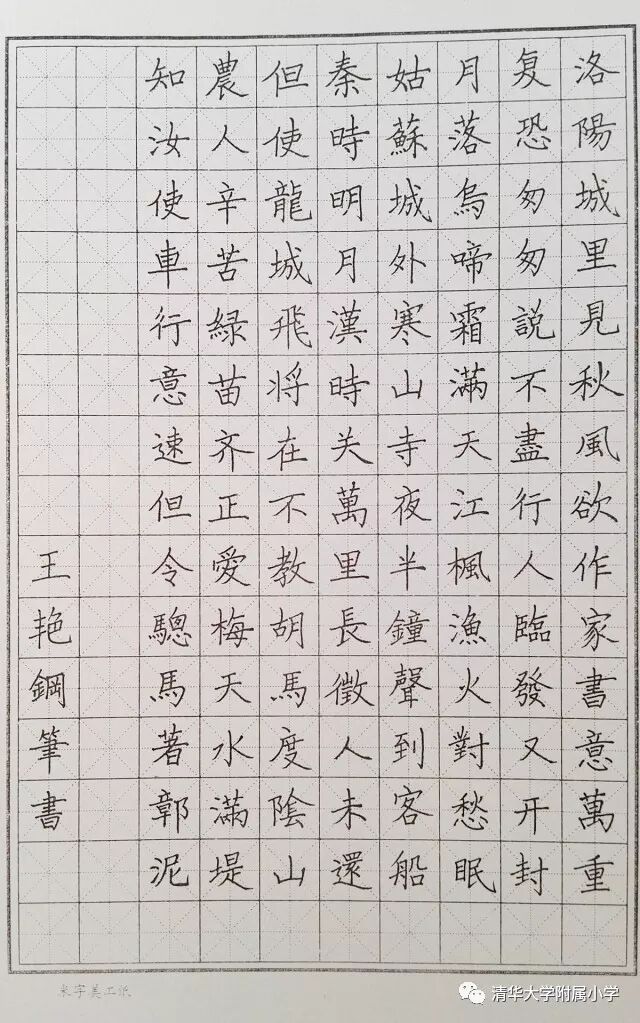 洛陽城里見秋風欲作家書意萬重
复恐匆匆説不盡行人臨發又开封
月落烏啼霜滿天江楓漁火對愁眠
姑蘇城外寒山寺夜半鐘聲到客船
秦時明月漢時关萬里長徵人未還
但使龍城飛将在不教胡馬度陰山
農人辛苦緑苗齐正愛梅天水滿堤
知汝使車行意速但令驄馬著鄣泥
王艳鋼筆書
米字美工纸
清华大学附属小学